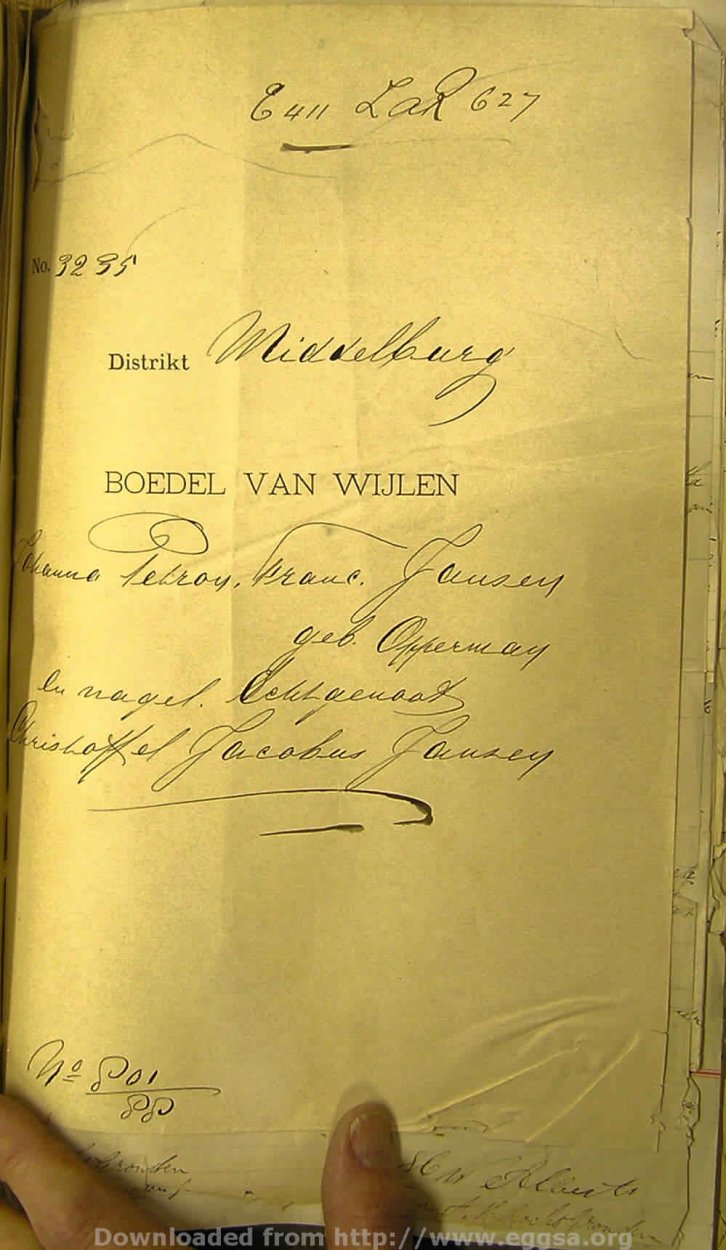 E 411 LaR 627
No. 3235
Distrikt Middelburg
BOEDEL VAN WIJLEN
Johanna Petron. Franc. Jansen
geb. Opperman
en nagel. Echtgenoot
Christoffel Jacobus Jansen
No 801
88
Alberts
Downloaded from http://www.eggsa.org